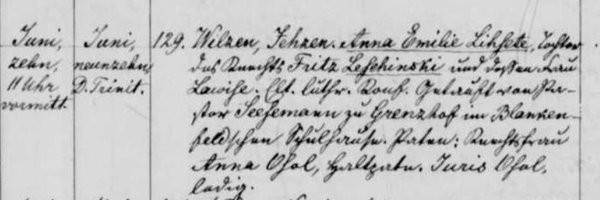 Juni, zehn, 11 Uhr vormitt.
Juni, neunzehn, D. Trinit.
129. Wilzen, Jehzen. Anna Emilie Lihsete, Tochter
des Knechts Fritz Leschinski und dessen Frau
Lawise. Ev. luthr. Konf. Getauft von Pa-
stor Seesemann zu Grenzhof im Blanken-
feldschen Schulhause. Paten: Knechtsfrau
Anna Ohsol, Juris Ohsol,
ledig.